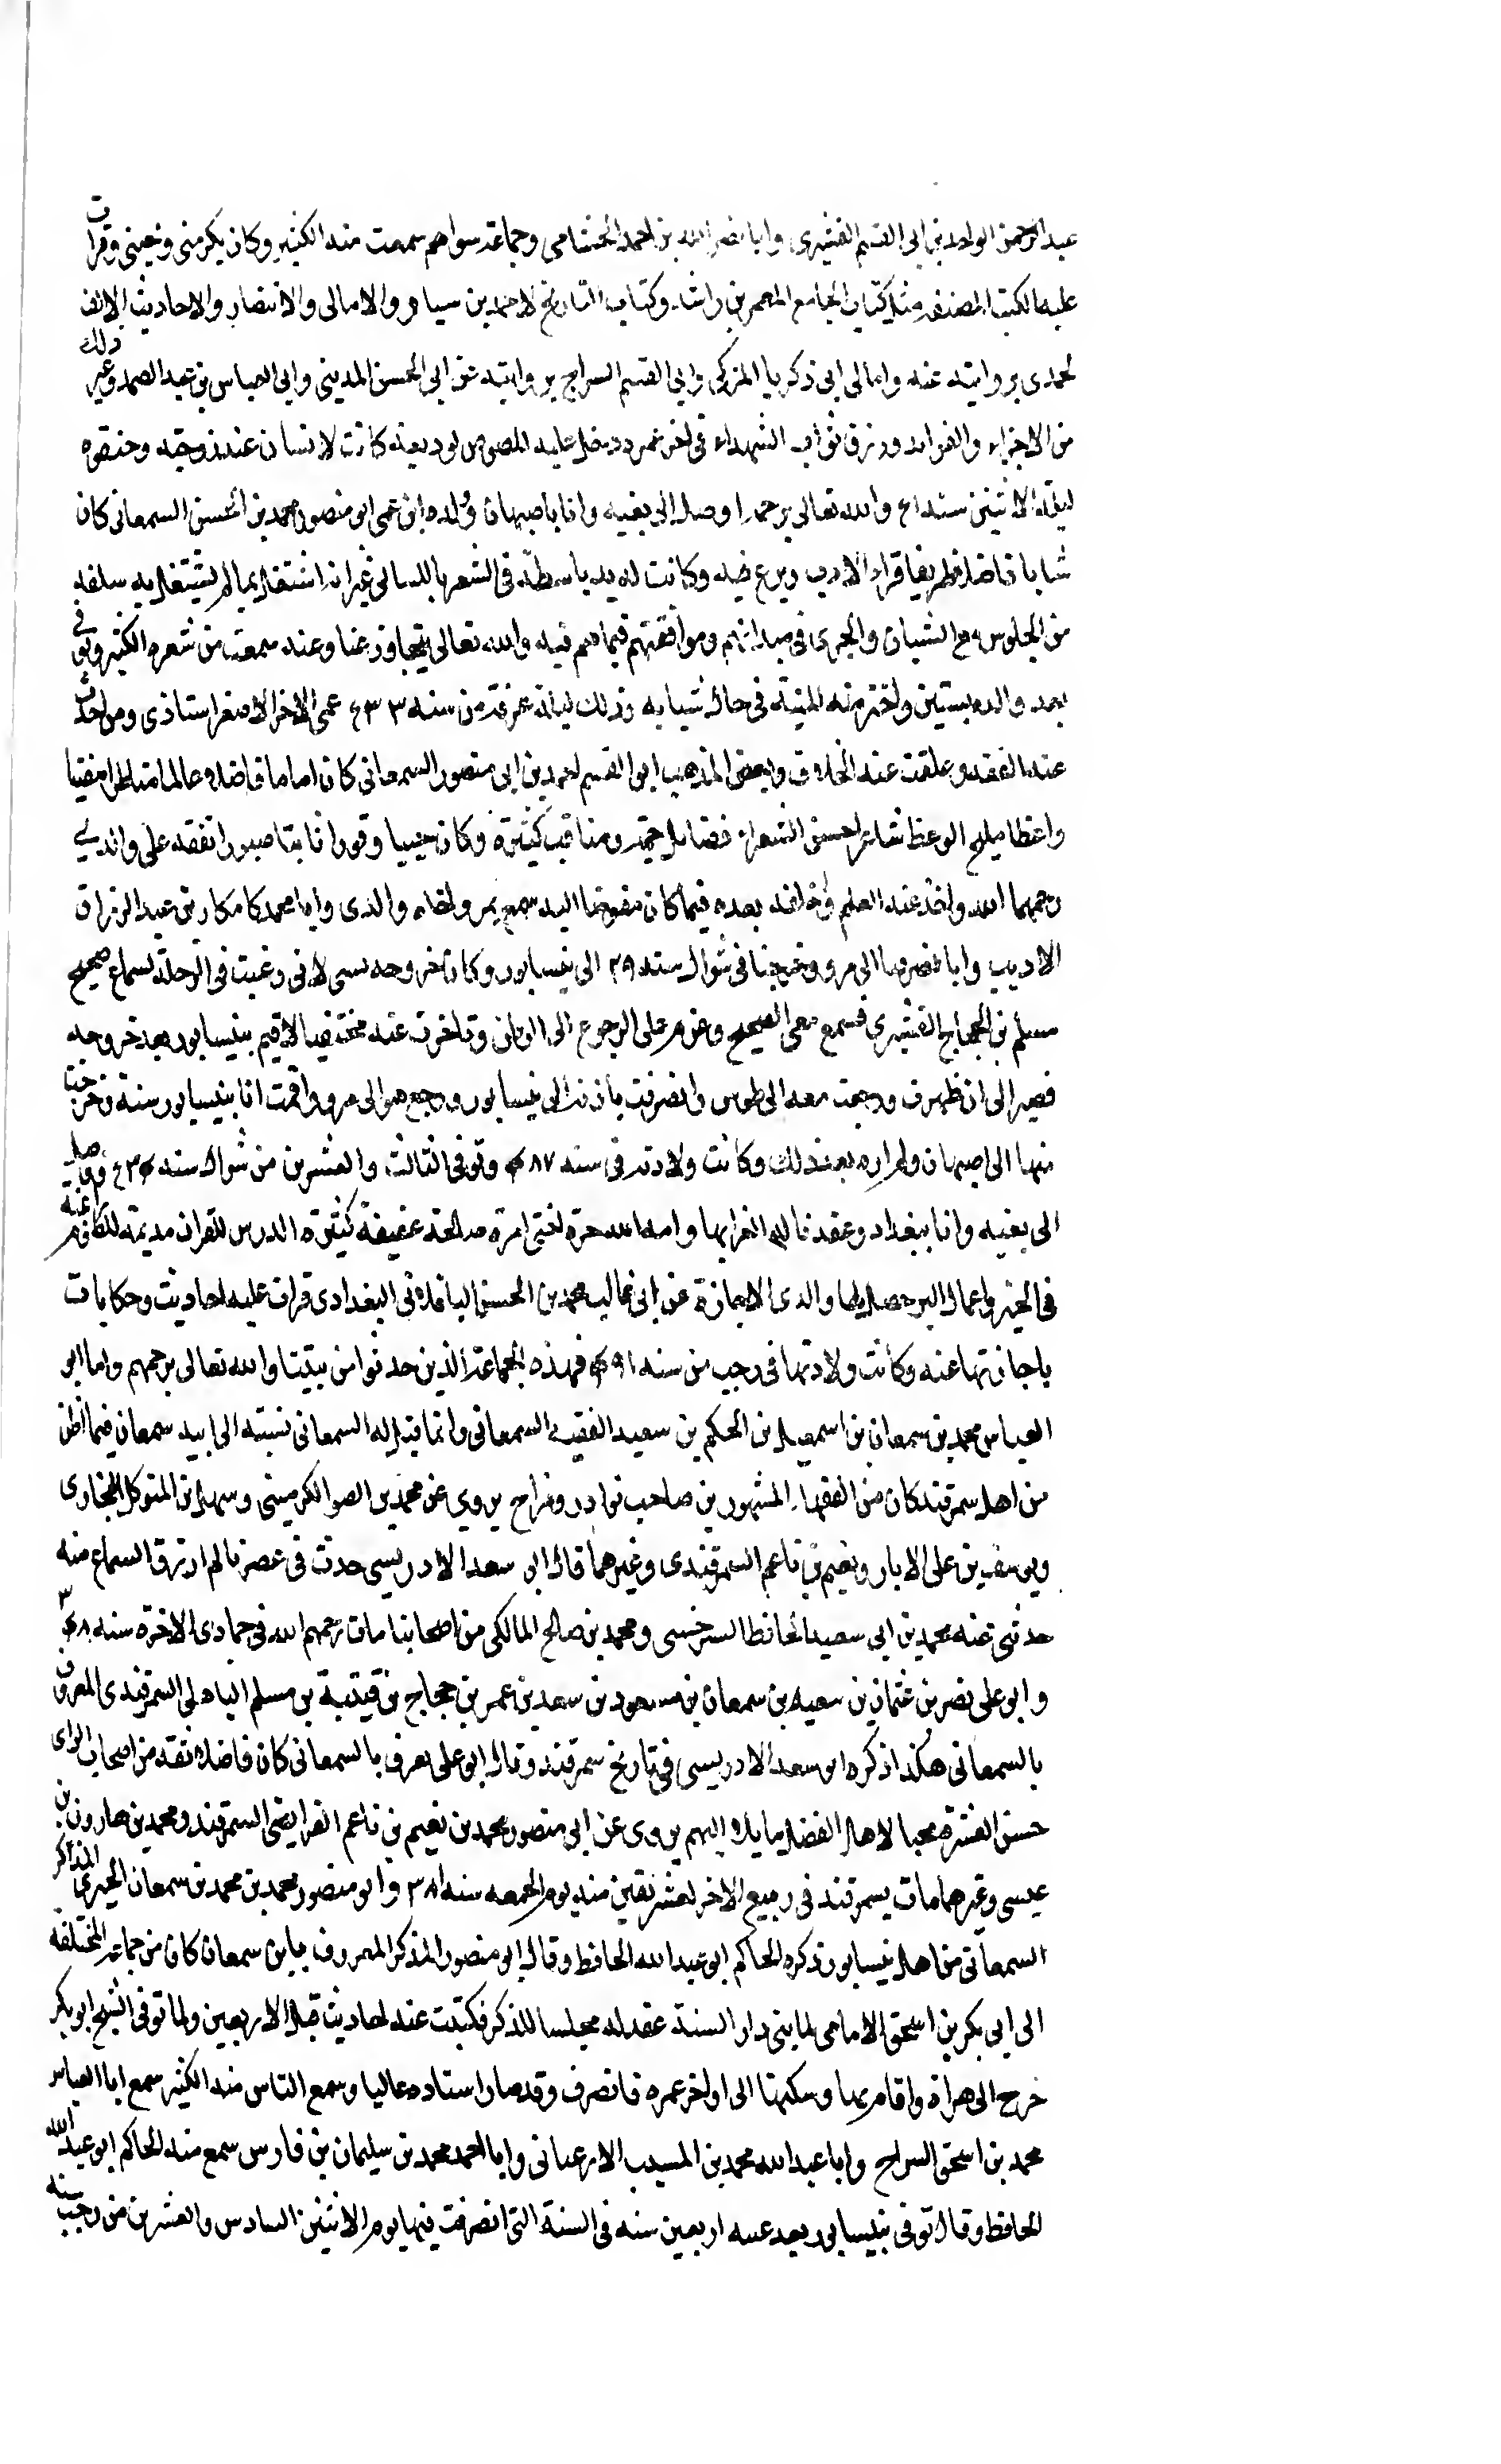 عبد الرحمن الواحد بن ابى القسم القشيرى وابا نصر الله بن احمد الخشنامى وجماعة سواهم سمعت منه الكثير وكان يكرمنى وقرات
عليه الكتب المصنفه مثل كتاب الجامع لمعمر بن راشد وكتاب التاريخ لاحمد بن سيار والامالى والانتصار والاحاديث الالف
بروايته عنه وامالى ابى زكريا المزكى وابى القسم السراج بروايته عن ابى الحسن المدينى وابى العباس بن عبد الصمد وغير ذلك
من الاجزاء والفوائد ورزق ثواب الشهداء فى اخر عمره دخل عليه اللصوص لوديعة كانت لانسان عند زوجته وخنقوه
ليلة الاثنين سنه والله تعالى يرحمه وصل الى نعيه وانا باصبهان وولده ابن عمى ابو منصور محمد بن الحسن السمعانى كان
شابا فاضلا ظريفا قرا الادب وبرع فيه وكانت له يد باسطة فى الشعر باللسانى غير انه اشتغل بما لم يشتغل به سلفه
من الجلوس مع الشبان والجرى فى ميدانهم وموافقتهم فيما هم فيه والله تعالى يتجاوز عنا وعنه سمعت من شعره الكثير وتوفى
بعد والده بسنتين واخترمته المنية فى حال شبابه وذلك ليلة عرفة من سنه ٣٣ عمى الاخر الاصغر استاذى ومن اخذت
عنه الفقه وعلقت عنه الخلاف وبعض المذهب ابو القسم احمد بن ابى منصور السمعانى كان اماما فاضلا وعالما مناظرا مفتيا
واعظا مليح الوعظ شاعرا حسن الشعر له فضائل جمة ومناقب كثيرة وكان حييا وقورا ثابتا صبورا تفقه على والدى
رحمهما الله واخذ عنه العلم وخلفه بعده فيما كان مفوضا اليه سمع بمرو والدى وابا محمد كامكار بن عبد الرزاق
الاديب وابا نصر الى مرو وخرجنا فى شوال سنه ٢٩ الى نيسابور وكان خروجه بسبى لانى رغبت فى الرحلة لسماع صحيح
مسلم بن الحجاج القشيرى فسمع معى الصحيح وعزم على الرجوع الى الوطن وتاخرت عنه مختفيا لاقيم بنيسابور بعد خروجه
فصبر الى ان ظهرت ورجعت معه الى طوس وانصرفت باذنه الى نيسابور ورجع هو الى مرو واقمت انا بنيسابور سنة وخرجت
منها الى اصبهان ولم اره بعد ذلك وكانت ولادته فى سنه وتوفى الثالث والعشرين من شوال سنه وصل
الى نعيه وانا ببغداد وعقدنا له العزا بها وامة الله حرة اختى امرة صالحة عفيفة كثيرة الدرس للقران مديمة للصوم راغبة
فى الخير واعمال البر حصل لها والدى الاجازة عن ابى غالب محمد بن الحسن الباقلانى البغدادى قرات عليها احاديث وحكايات
باجازتها عنه وكانت ولادتها فى رجب من سنه فهذه الجماعة الذين حدثوا من بيتنا والله تعالى يرحمهم واما ابو
العباس محمد بن سمعان بن اسمعيل بن الحكم بن سعيد الفقيه السمعانى وانما قيل له السمعانى نسبته الى ابيه سمعان فيما اظن
من اهل سمرقند كان من الفقهاء المشهورين صاحب نوادر ومزاح يروى عن محمد بن الضو الكرمينى وسهل بن المتوكل البخارى
ويوسف بن على الابار ونعيم بن ناعم السمرقندى وغيرهما قال ابو سعد الادريسى حدث فى عصرنا لم ارزق السماع منه
حدثنى عنه محمد بن ابى سعيد الحافظ السرخسى ومحمد بن صالح المالكى من اصحابنا مات رحمهم الله فى جمادى الاخرة سنه
وابو على نصر بن عثمان بن سعيد بن سمعان بن مسعود بن سعد بن عمر بن حجاج بن قتيبة بن مسلم الباهلى السمرقندى المعروف
بالسمعانى هكذا ذكره ابو سعد الادريسى فى تاريخ سمرقند وقال ابو على يعرف بالسمعانى كان فاضلا ثقه من اصحاب الراى
حسن العشرة محبا لاهل الفضل مايلا اليهم يروى عن ابى منصور محمد بن نعيم بن ناعم الفرايضى السمرقندى ومحمد بن هارون بن
عيسى وغيرهما مات بسمرقند فى ربيع الاخر لعشر بقين منه يوم الجمعه سنه ٣٨١ وابو منصور محمد بن محمد بن سمعان الحيرى المذكر
السمعانى من اهل نيسابور ذكره الحاكم ابو عبد الله الحافظ وقال ابو منصور المذكر المعروف بابن سمعان كان من جماعة المختلفة
الى ابى بكر بن اسحق الامام لما بنى دار السنة عقد له مجلسا للذكر فكتبت عنه احاديث قبل الاربعين ولما توفى الشيخ ابو بكر
خرج الى هراة واقام بها وسكنها الى اواخر عمره فانصرف وقد صار اسناده عاليا وسمع الناس منه الكثير سمع ابا العباس
محمد بن اسحق السراج وابا عبد الله محمد بن المسيب الارغيانى وابا احمد محمد بن سليمان بن فارس سمع منه الحاكم ابو عبد الله
الحافظ وقال توفى بنيسابور بعد اربعين سنه فى السنة التى انصرفت فيها يوم الاثنين السادس والعشرين من رجب سنه